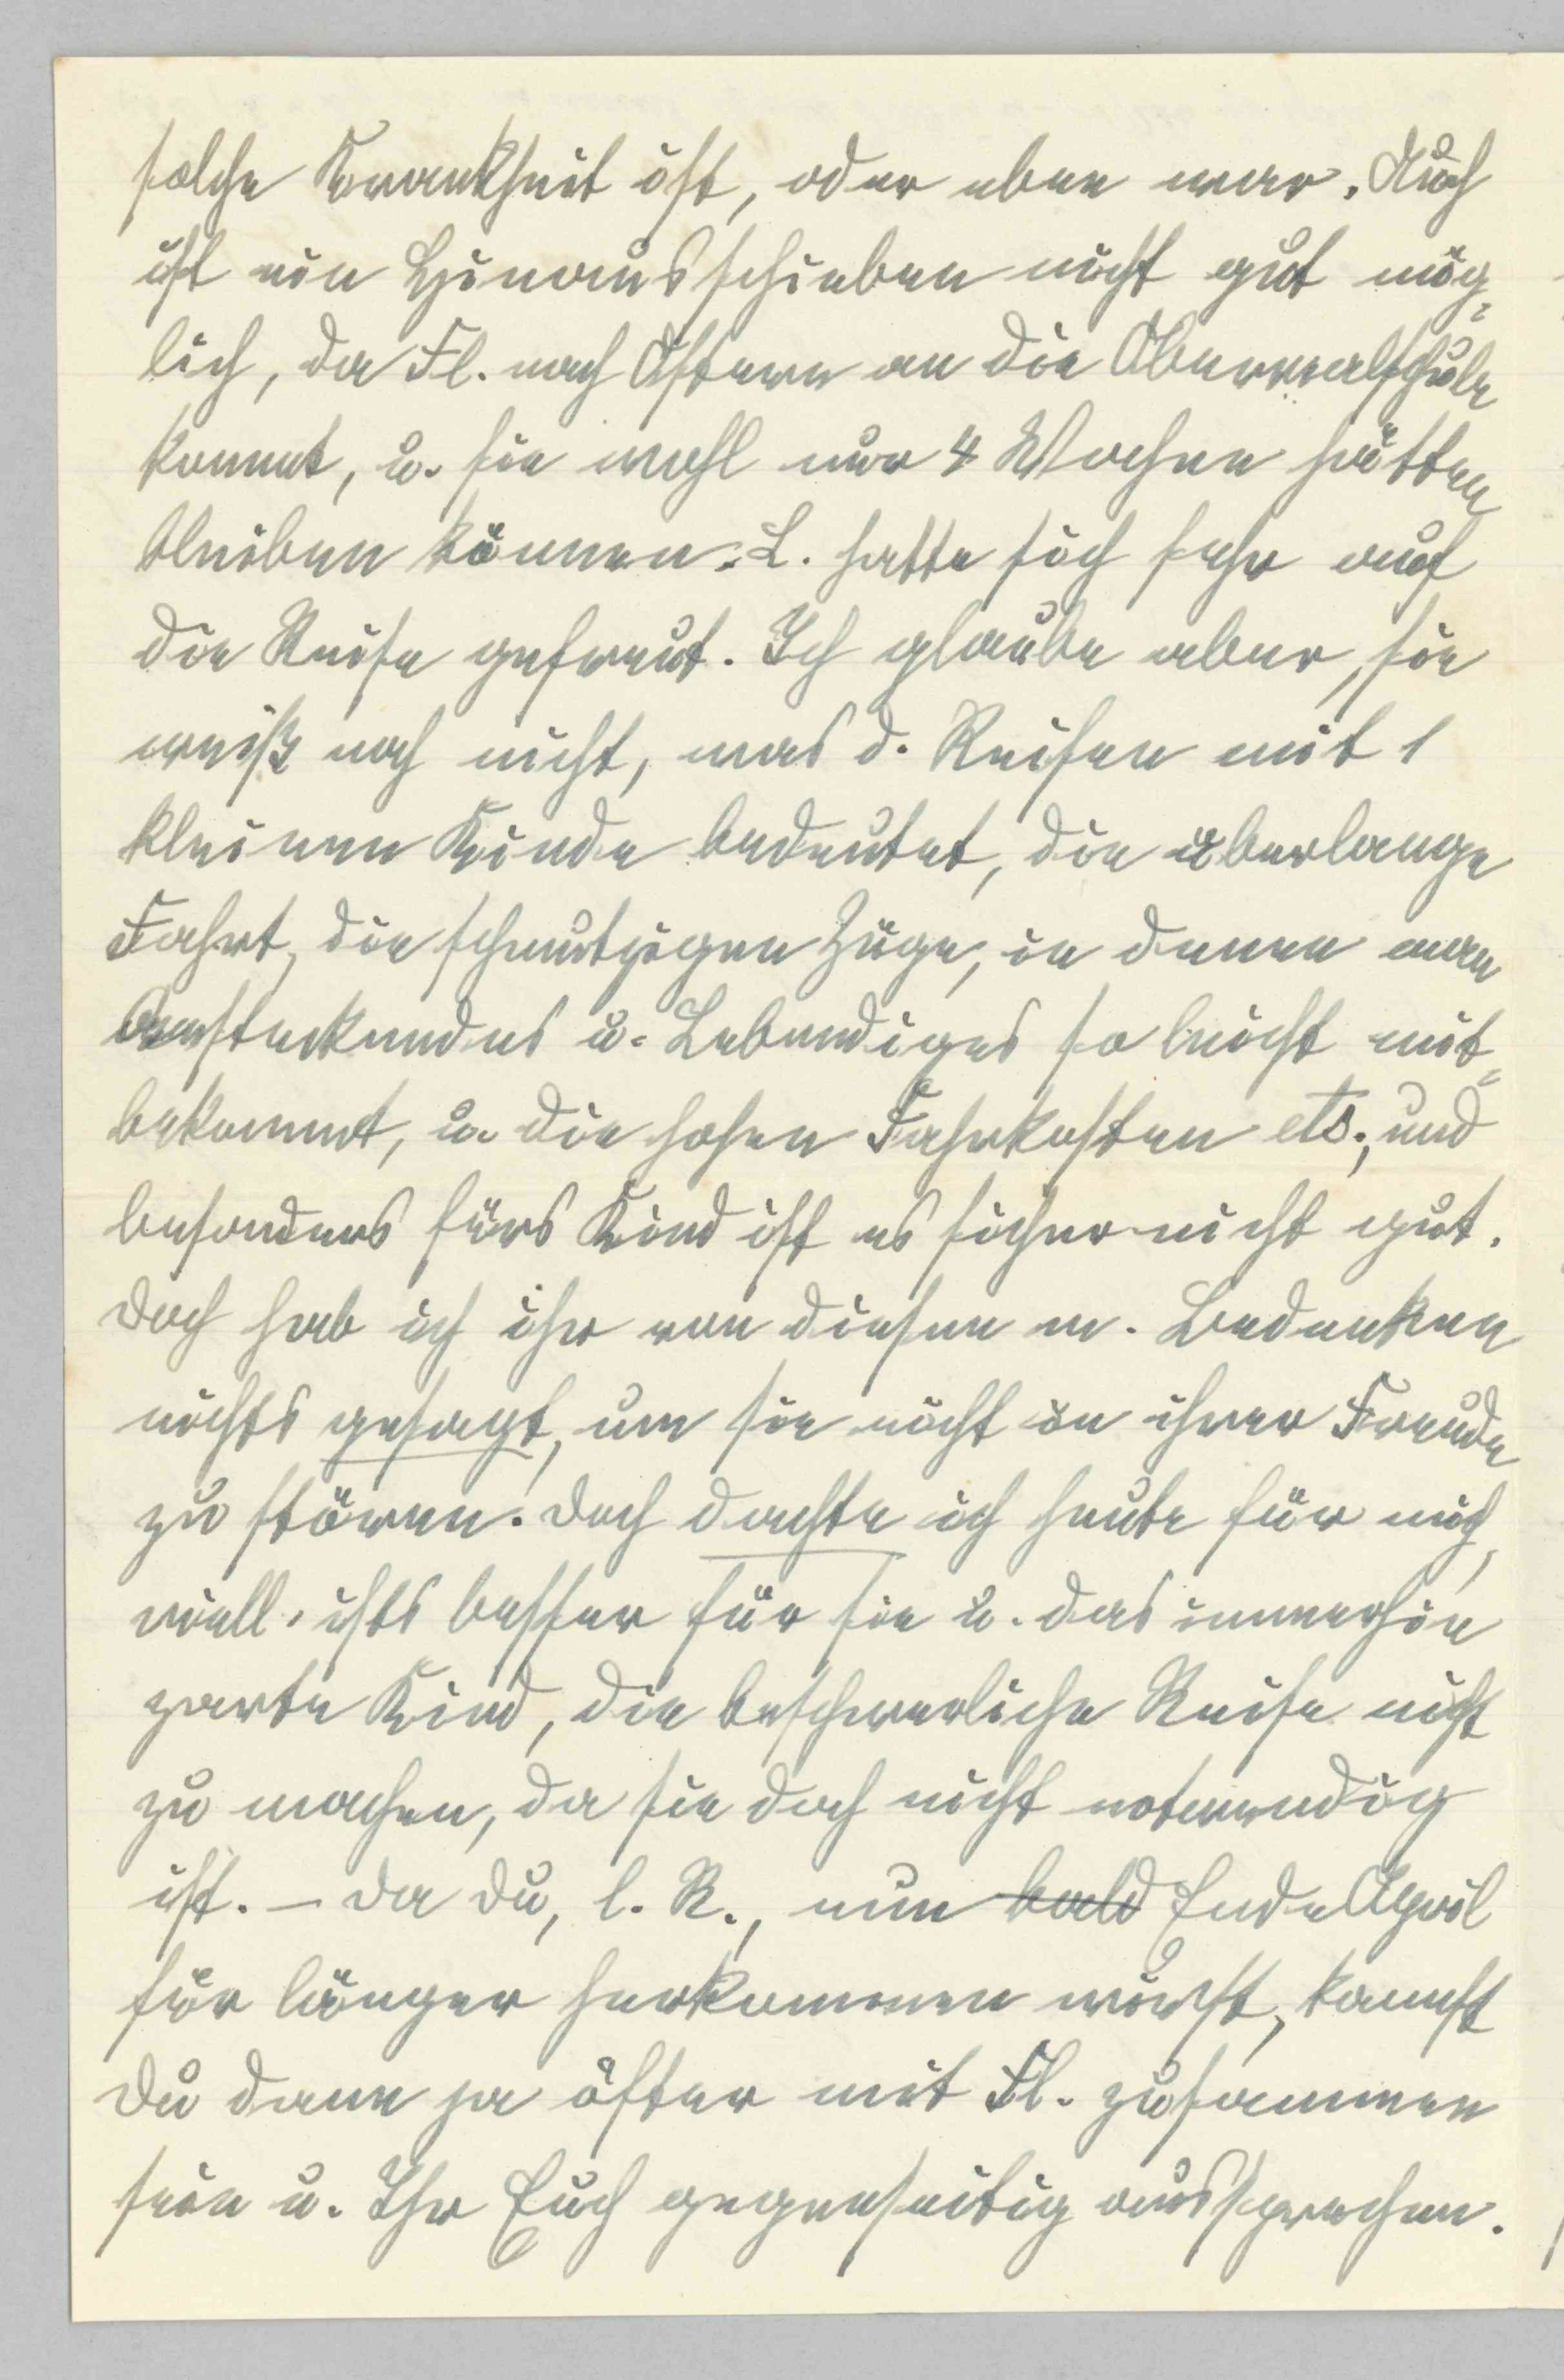 solche Krankheit ist, oder eben war. Auch
ist ein Hinausschieben nicht gut mög=
lich, da Fl. nach Ostern an die Oberrealschule
kommt, u. sie wohl nur 4 Wochen hätten
bleiben können. L. hatte sich sehr auf
die Reise gefreut. Ich glaube aber, sie
weiß noch nicht, was d. Reisen mit 1
kleinen Kinde bedeutet, die überlange
Fahrt, die schmutzigen Züge, in denen man
Ansteckendes u. Lebendiges so leicht mit=
bekommt, u. die hohen Fahrkosten etc., und
besonders fürs Kind ist es sicher nicht gut.
Doch hab ich ihr von diesen m. Bedenken
nichts gesagt, um sie nicht in ihrer Freude
zu stören. Doch dachte ich heute für mich,
viell. ists besser für sie u. das immerhin
zarte Kind, die beschwerliche Reise nicht
zu machen, da sie doch nicht notwendig
ist. – Da Du, l. R., nun bald Ende April
für länger herkommen wirst, kannst
Du dann ja öfter mit Fl. zusammen
sein u. Ihr Euch gegenseitig aussprechen.